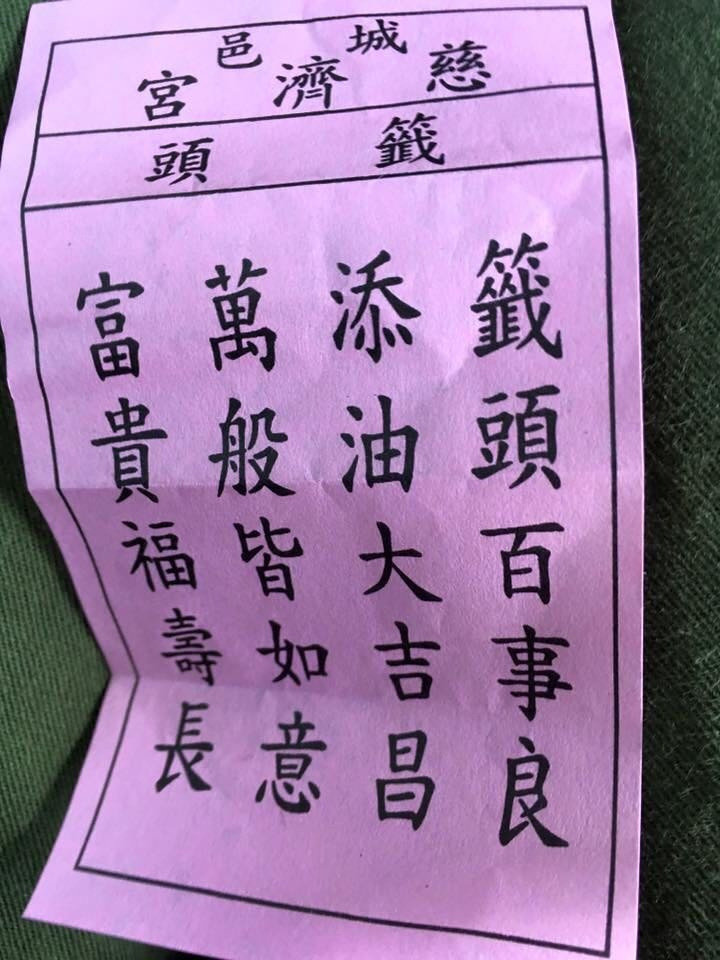 城邑
慈濟宮
籤頭
籤頭百事良
添油大吉昌
萬般皆如意
富貴福壽長